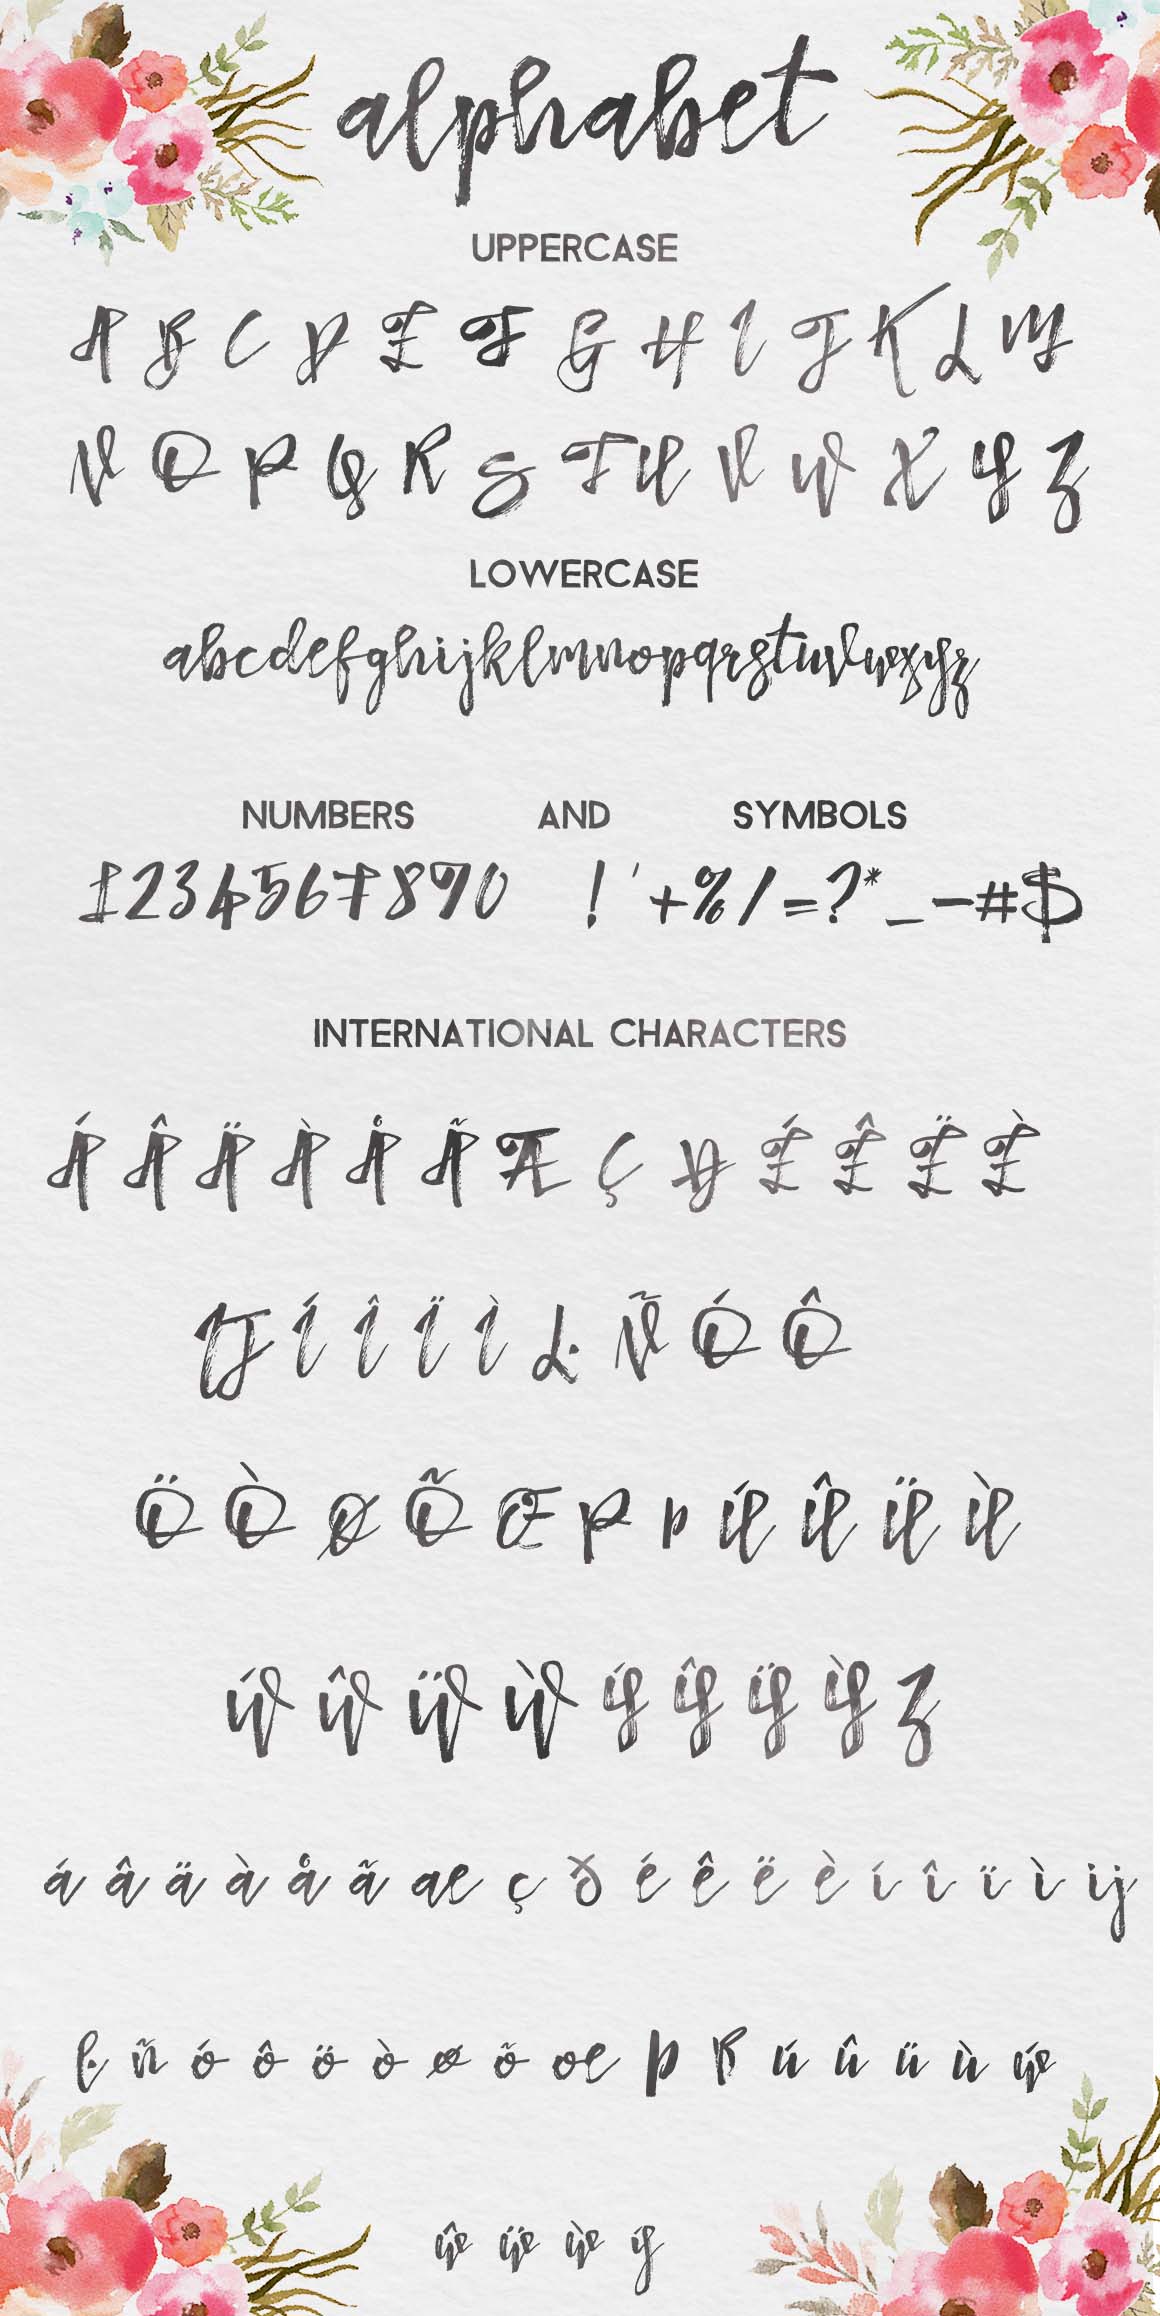 alphabet
UPPERCASE
A B C D E F G H I J K L M
N O P Q R S T U V W X Y Z
LOWERCASE
abcdefghijklmnopqrstuvwxyz
NUMBERS AND SYMBOLS
1234567890 ! ' + % / = ? * _ - # $
INTERNATIONAL CHARACTERS
Á Â Ä À Å Ã Æ Ç Ð É Ê Ë È
IJ Í Î Ï Ì Ŀ Ñ Ó Ô
Ö Ò Ø Õ Œ P Þ Ú Û Ü Ù
Ẃ Ŵ Ẅ Ẁ Ý Ŷ Ÿ Ỳ Z
á â ä à å ã æ ç ð é ê ë è í î ï ì ij
ŀ ñ ó ô ö ò ø õ œ þ ß ú û ü ù ẃ
ŵ ẅ ẁ ý